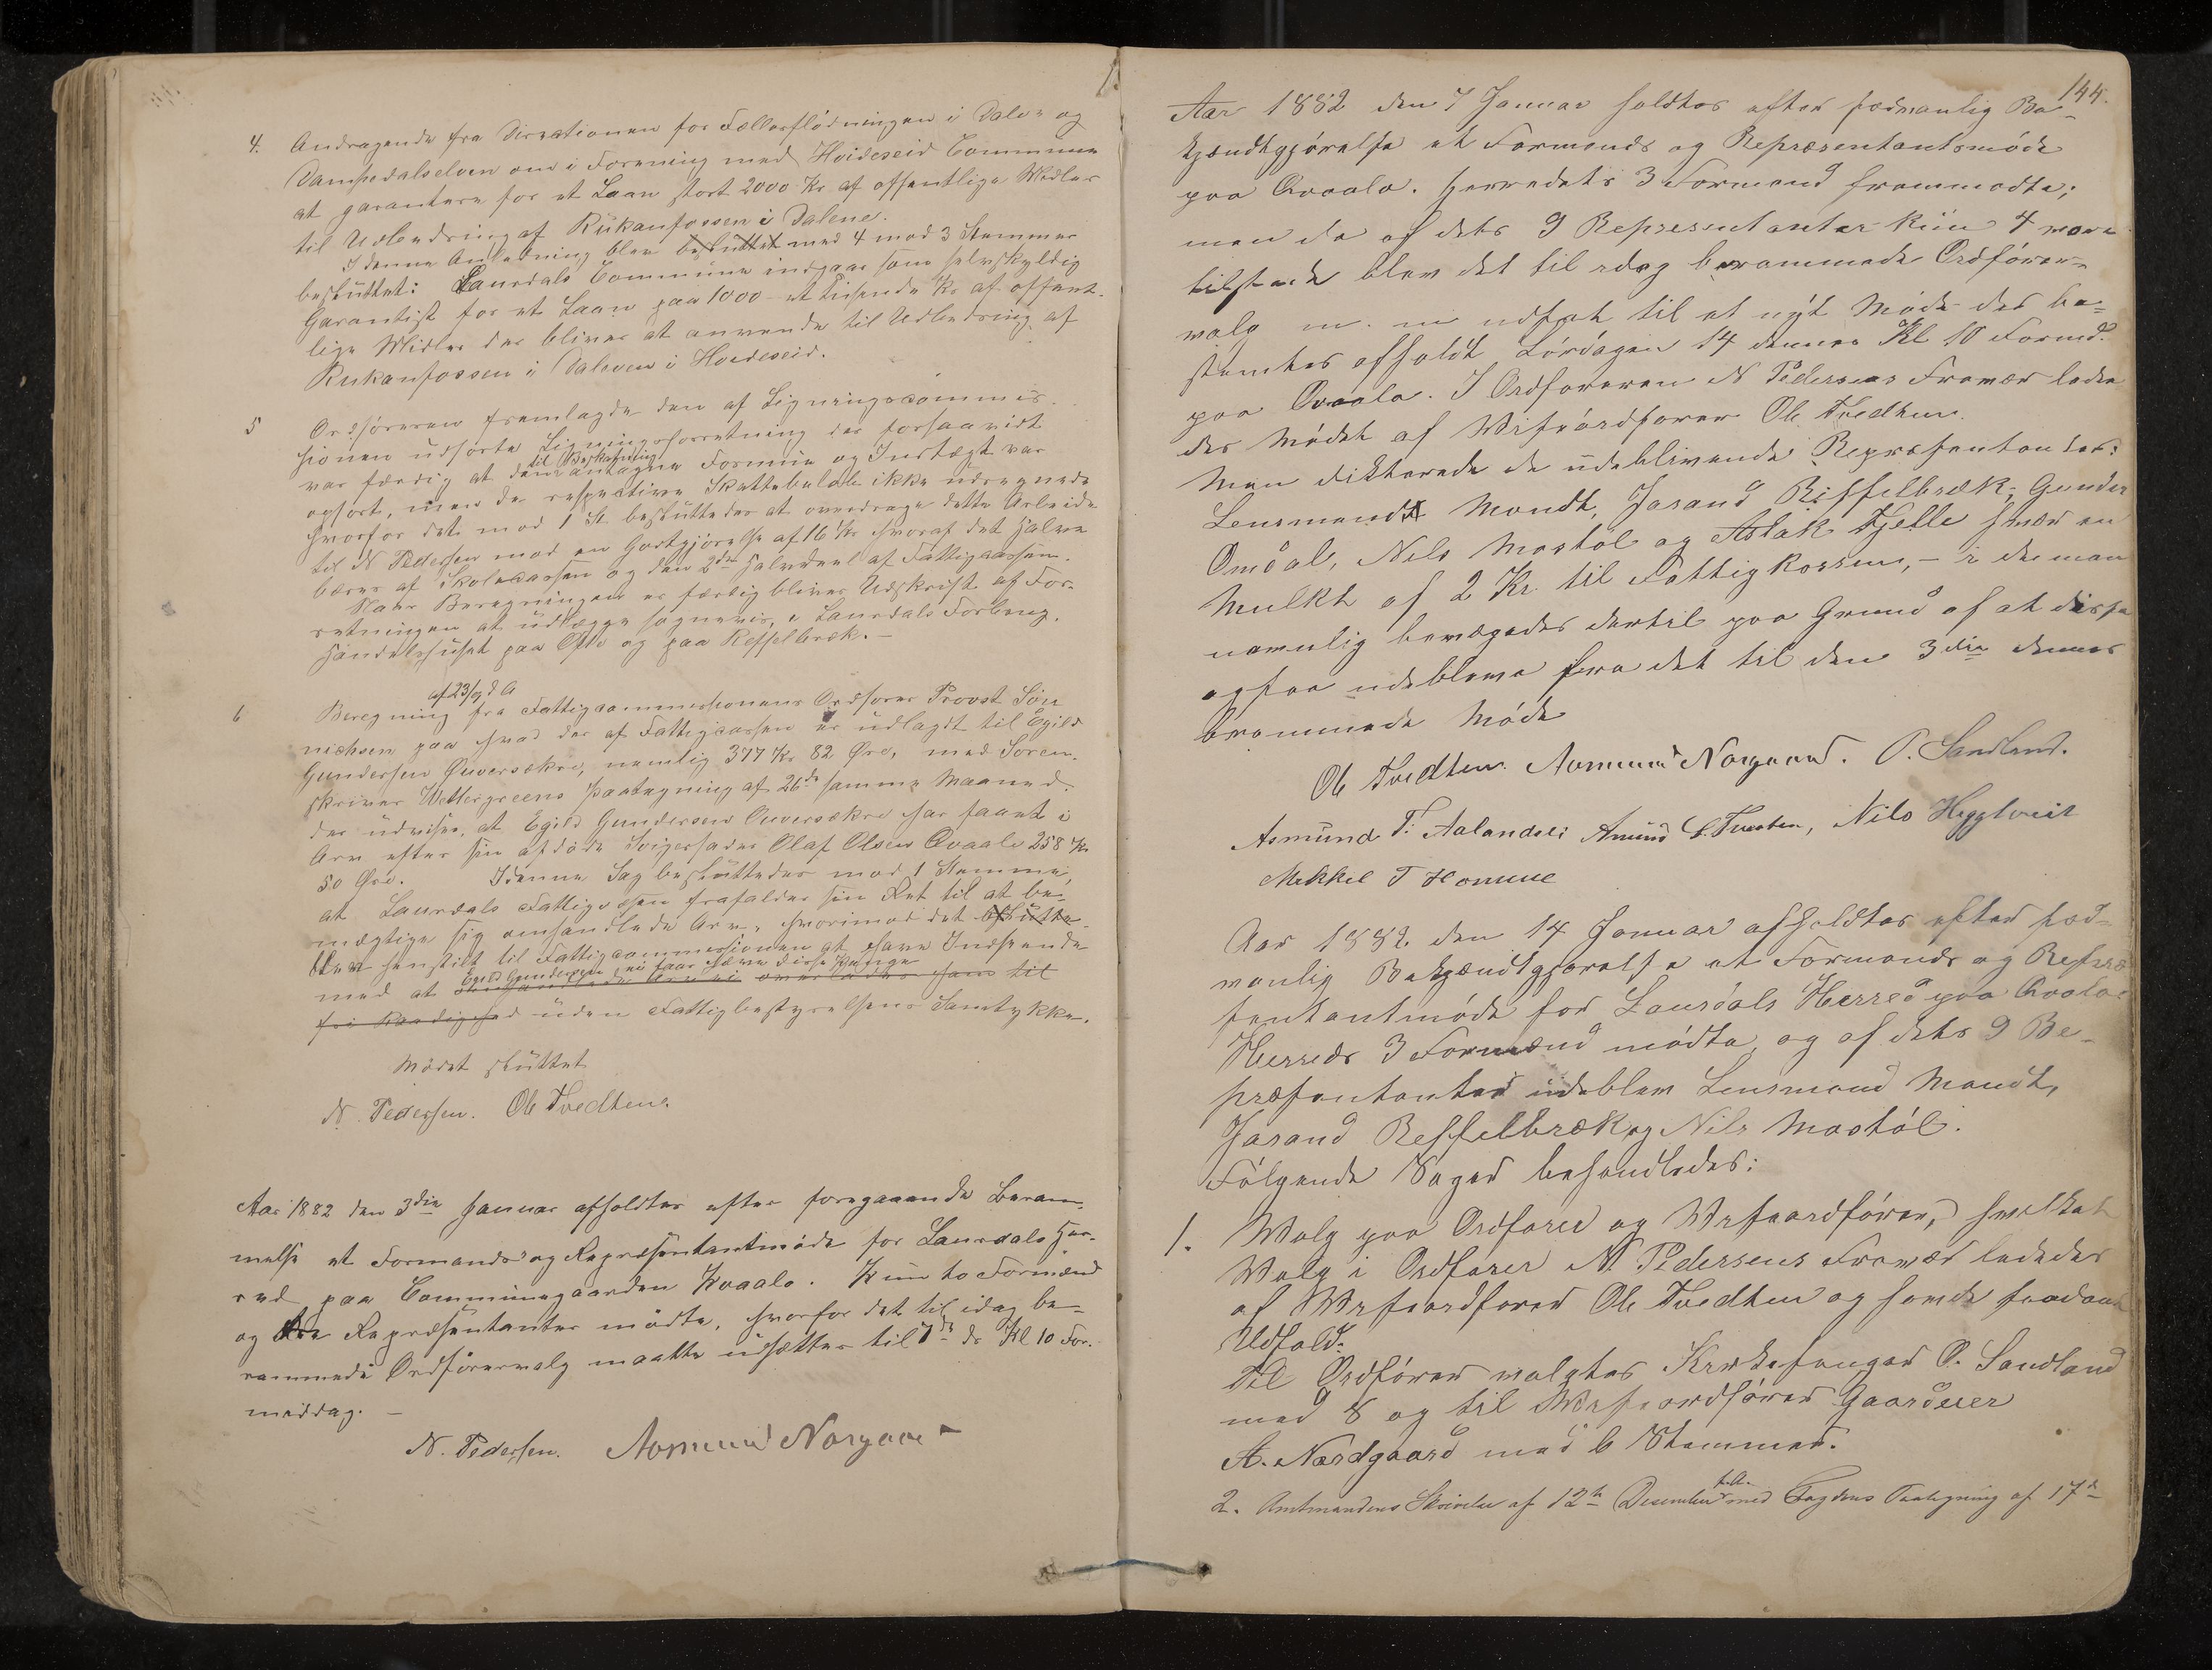 4. Andragende fra Direktionen for Fællesflödningen i Dale- og
Dampedalselven om i Forening med Hvideseid Commune
at garantere for et Laan stort 2000 Kr af offentlige Midler
til Udbedring af Rukanfossen i Dalene.
I denne Anledning blev besluttet med 4 mod 3 Stemmer
besluttet: Laurdals Commune indgaar som selvskyldig
Garantist for et Laan paa 1000 - et Tusende Kr af offent-
lige Midler der bliver at anvende til Udbedring af
Rukanfossen i Daleven i Hvideseid.
5 Ordföreren fremlagde den af Ligningscommis-
sionen udförte Ligningsforretning der forsaavidt
til Beskatning
var færdig at den antagne Formue og Indtægt var
opfört, men da respective Skattebeløb ikke udregnede
hvorfor det mod 1 St. besluttedes at overdrage dette Arbeide
til N Pedersen mod en Godtgjörelse af 16 Kr hvoraf det halve
bæres af Skolecassen og den 2den Halvdeel af Fattigcassen.
Naar Beregningen er færdig bliver Udskrift af For-
retningen at udlægge sognevis, i Laurdals Forbrug.
Handelshuset paa Ofte og paa Reffelbræk. -
af 23/9 d A
6 Beregning fra Fattigcommissionens Ordförer Provst Sön
nichsen paa hvad der af Fattigcassen er udlagdt til Egild
Gundersen Qversækre, nemlig 377 Kr 82 Øre, med Soren-
skriver Wettergreens Paategning af 26de samme Maaned
der udviser, at Egild Gundersen Qversækre har faaet i
Arv efter sin afdöde Svigerfader Olaf Olsen Qvaale 258 Kr
50 Øre. I denne Sag besluttedes mod 1 Stemme,
at Laurdals Fattigvæsen frafalder sin Ret til at be-
mægtige sig omhandlede Arv, hvorimod det beslutte
blev henstilt til Fattigcommissionen at have Indseende
Egild Gundersen ei faar hæve disse Penge
med at omhandlede Arv ei overlades ham til
fri Raadighed uden Fattigbestyrelsens Samtykke.
Mödet sluttet
N. Pedersen. Ole Tvedten.
Aar 1882 den 3die Januar afholdtes efter foregaaende Beram-
melse et Formands- og Repræsentantmöde for Laurdals Her-
red paa Communegaarden Kvaale. Kun to Formænd
og tre Repræsentanter mödte, hvorfor det til idag be-
rammede Ordförervalg maatte udsættes til 7de ds Kl 10 For-
middag. -
N. Pedersen. Aamund Norgaar
144.
Aar 1882 den 7 Januar holdtes efter sædvanlig Be-
kjendtgjörelse et Formands og Repræsentantsmöde
paa Qvaale. Herredets 3 Formænd fremmödte;
men da af dets 9 Repræsentanter kun 4 vare
tilstede blev det til idag berammede Ordförer-
valg m. m udsat til et nyt Möde der be-
stemtes afholdt Lördagen 14 dennes Kl 10 Formd.
paa Qvaale. I Ordföreren N Pedersens Fravær lede
des Mödet af Viseordförer Ole Tvedten.
Man dikterede de udeblivende Repræsentanter:
Lensmand Mandt, Jarand Riffelbræk, Gunder
Omdal, Nils Mostöl og Aslak Fjelle hver en
Mulkt af 2 Kr. til Fattigkassen, - i det man
navnlig bevægedes dertil paa Grund af at disse
ogsaa udebleve fra det til den 3die dennes
berammede Möde
Ole Tvedten. Aamund Norgaard. O. Sandland.
Asmund T. Aalandsli Amund C. Tveten, Nils Hegglveit
Mikkel T Homme
Aar 1882 den 14 Januar afholdtes efter sæd-
vanlig Bekjendtgjörelse et Formands og Repræ
sentantmöde for Laurdals Herred paa Qvale.
Herreds 3 Formænd mödte, og af dets 9 Re-
præsentanter udeblev Lensmand Mandt,
Jarand Reffelbræk og Nils Mostöl.
Fölgende Sager behandledes:
1. Valg paa Ordförer og Viseordförer, hvilket
Valg i Ordförer N Pedersens Fravær lededes
af Viseordförer Ole Tvedten og havde saadant
Udfald.
Til Ordförer valgtes Kirkesanger O. Sandland
med 8 og til Viseordförer Gaardeier
A. Nordgaard med 6 Stemmer.
t. A.
2. Amtmandens Skrivelse af 12te Desember med Fogdens Paategning af 17de